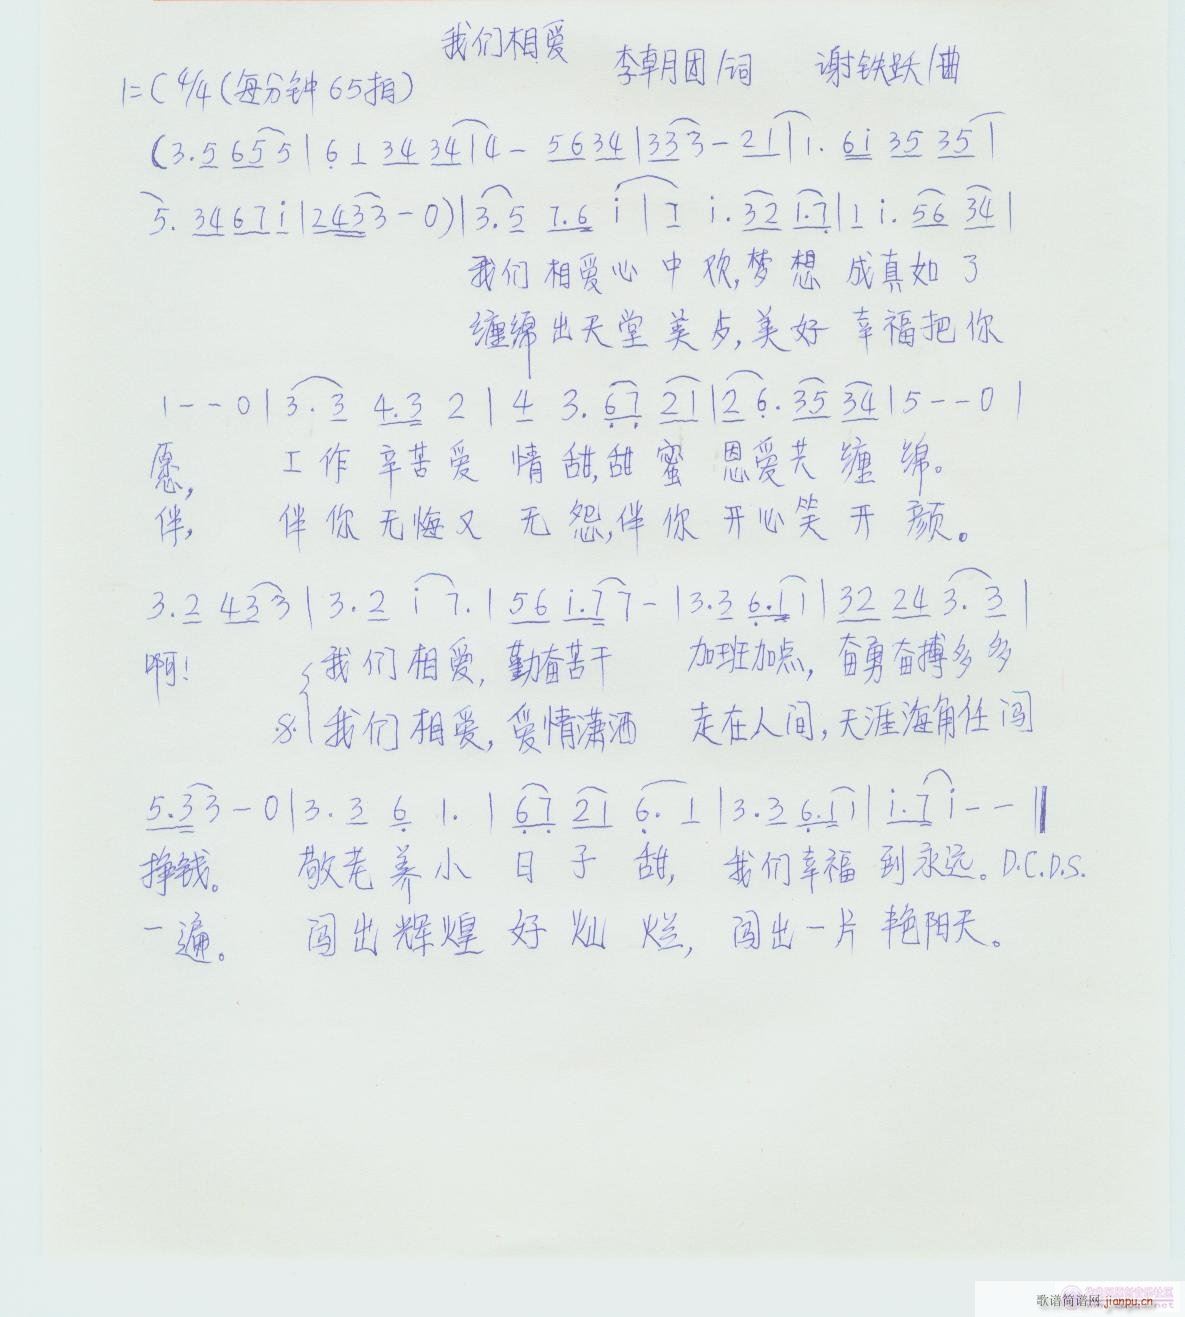 我们相爱
李朝月团/词 谢铁跃/曲
1=C 4/4 (每分钟65拍)
(3.5 65 5 | 6 1 34 34 | 4 - 5634 | 33 3 - 21 | 1. 6i 35 35 |
5. 3467i | 2433 - 0) | 3.5 7.6 i | i i.32 i.7 | 1 i. 56 34 |
我们相爱心中欢,梦想成真如了
缠绵出天堂美步,美好幸福把你
1 - - 0 | 3.3 4.3 2 | 4 3. 67 21 | 2 6. 35 34 | 5 - - 0 |
愿, 工作辛苦爱情甜,甜蜜恩爱共缠绵。
伴, 伴你无悔又无怨,伴你开心笑开颜。
3.2 43 3 | 3.2 i 7. | 56 i.7 7 - | 3.3 6.1 1 | 32 24 3.3 |
啊! 我们相爱,勤奋苦干 加班加点,奋勇奋搏多多
我们相爱,爱情潇洒 走在人间,天涯海角任闯
5.3 3 - 0 | 3.3 6 1. | 67 21 6. 1 | 3.3 6.1 1 | i.7 i - - ‖
挣钱。 敬老养小日子甜, 我们幸福到永远。D.C.D.S.
一遍。 闯出辉煌好灿烂, 闯出一片艳阳天。
歌谱简谱网 jianpu.cn